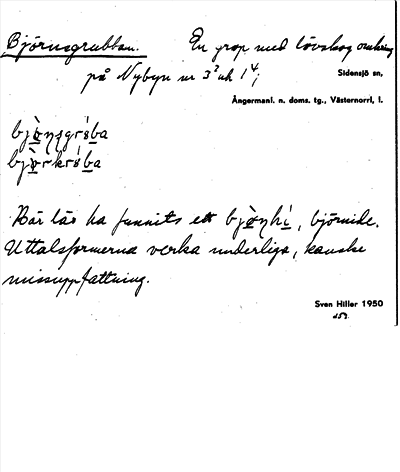 Björnsgrubban. En grop med lövskog omkring
på Nybyn nr 3² och 1⁴;
Sidensjö sn,
Ångermanl. n. doms. tg., Västernorrl, l.
Här läs ha funnits ett , björnide.
Uttalsformerna verka underliga, kanske
missuppfattning.
Sven Hiller 1950